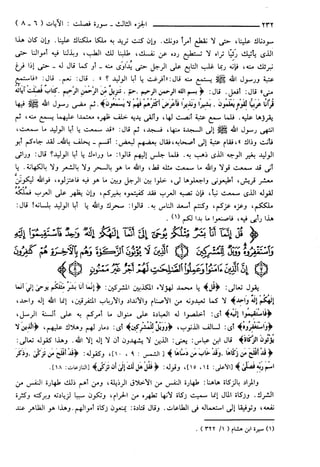 ٢٣٢ الجزء الثالث - سورة فصلت: الآيات (٦ - ٨)
سودناك علينا، حتى لا نقطع أمراً دونك. وإن كنت تريد به ملكاً ملكناك علينا. وإن كان هذا
الذي يأتيك رئياً تراه لا تستطيع رده عن نفسك، طلبنا لك الطب، وبذلنا فيه أموالنا حتى
نبرئك منه، فإنه ربما غلب التابع على الرجل حتى يداوى منه - أو كما قال له - حتى إذا فرغ
عتبة ورسول الله ﷺ يستمع منه قال: «أفرغت يا أبا الوليد؟» قال: نعم. قال: «فاستمع
مني» قال: أفعل. قال: ﴿بسم الله الرحمن الرحيم. حم. تنزيل من الرحمن الرحيم. كتاب فصلت آياته
قرآناً عربياً لقوم يعلمون. بشيراً ونذيراً فأعرض أكثرهم فهم لا يسمعون﴾. ثم مضى رسول الله ﷺ فيها
يقرؤها عليه. فلما سمع عتبة أنصت لها، وألقى يديه خلف ظهره معتمداً عليهما يسمع منه، ثم
انتهى رسول الله ﷺ إلى السجدة منها، فسجد، ثم قال: «قد سمعت يا أبا الوليد ما سمعت،
فأنت وذاك»، فقام عتبة إلى أصحابه، فقال بعضهم لبعض: أقسم - يحلف بالله- لقد جاءكم أبو
الوليد بغير الوجه الذي ذهب به. فلما جلس إليهم قالوا: ما وراءك يا أبا الوليد؟ قال: ورائي
أني قد سمعت قولاً والله ما سمعت مثله قط، والله ما هو بالسحر ولا بالشعر ولا بالكهانة. يا
معشر قريش، أطيعوني واجعلوها لي، خلوا بين الرجل وبين ما هو فيه فاعتزلوه، فوالله ليكونن
لقوله الذي سمعت نبأ، فإن تصبه العرب فقد كفيتموه بغيركم، وإن يظهر على العرب فملكه
ملككم، وعزه عزكم، وكنتم أسعد الناس به. قالوا: سحرك والله يا أبا الوليد بلسانه! قال:
هذا رأيي فيه، فاصنعوا ما بدا لكم (١).
﴿قُلْ إِنَّمَا أَنَا بَشَرٌ مِثْلُكُمْ يُوحَى إِلَيَّ أَنَّمَا إِلَهُكُمْ إِلَهٌ وَاحِدٌ فَاسْتَقِيمُوا إِلَيْهِ
وَاسْتَغْفِرُوهُ وَوَيْلٌ لِلْمُشْرِكِينَ ۝ الَّذِينَ لَا يُؤْتُونَ الزَّكَاةَ وَهُمْ بِالْآخِرَةِ هُمْ كَافِرُونَ
۝ إِنَّ الَّذِينَ آمَنُوا وَعَمِلُوا الصَّالِحَاتِ لَهُمْ أَجْرٌ غَيْرُ مَمْنُونٍ ۝﴾
يقول تعالى: ﴿قل﴾ يا محمد لهؤلاء المكذبين المشركين: ﴿إنما أنا بشر مثلكم يوحى إلي أنما
إلهكم إله واحد﴾ لا كما تعبدونه من الأصنام والأنداد والأرباب المتفرقين، إنما الله إله واحد،
﴿فاستقيموا إليه﴾ أي: أخلصوا له العبادة على منوال ما أمركم به على ألسنة الرسل،
﴿واستغفروه﴾ أي: لسالف الذنوب، ﴿وويل للمشركين﴾ أي: دمار لهم وهلاك عليهم، ﴿الذين لا
يؤتون الزكاة﴾ قال ابن عباس: يعني: الذين لا يشهدون أن لا إله إلا الله. وهذا كقوله تعالى:
﴿قد أفلح من زكاها. وقد خاب من دساها﴾ [الشمس: ٩، ١٠]، وكقوله: ﴿قد أفلح من تزكى. وذكر
اسم ربه فصلى﴾ [الأعلى: ١٤، ١٥]، وقوله: ﴿فقل هل لك إلى أن تزكى﴾ [النازعات: ١٨].
والمراد بالزكاة هاهنا: طهارة النفس من الأخلاق الرذيلة، ومن أهم ذلك طهارة النفس من
الشرك. وزكاة المال إنما سميت زكاة لأنها تطهره من الحرام، وتكون سبباً لزيادته وبركته وكثرة
نفعه، وتوفيقاً إلى استعماله في الطاعات. وقال قتادة: يمنعون زكاة أموالهم. وهذا هو الظاهر عند
(١) سيرة ابن هشام (١/ ٣٢٢).